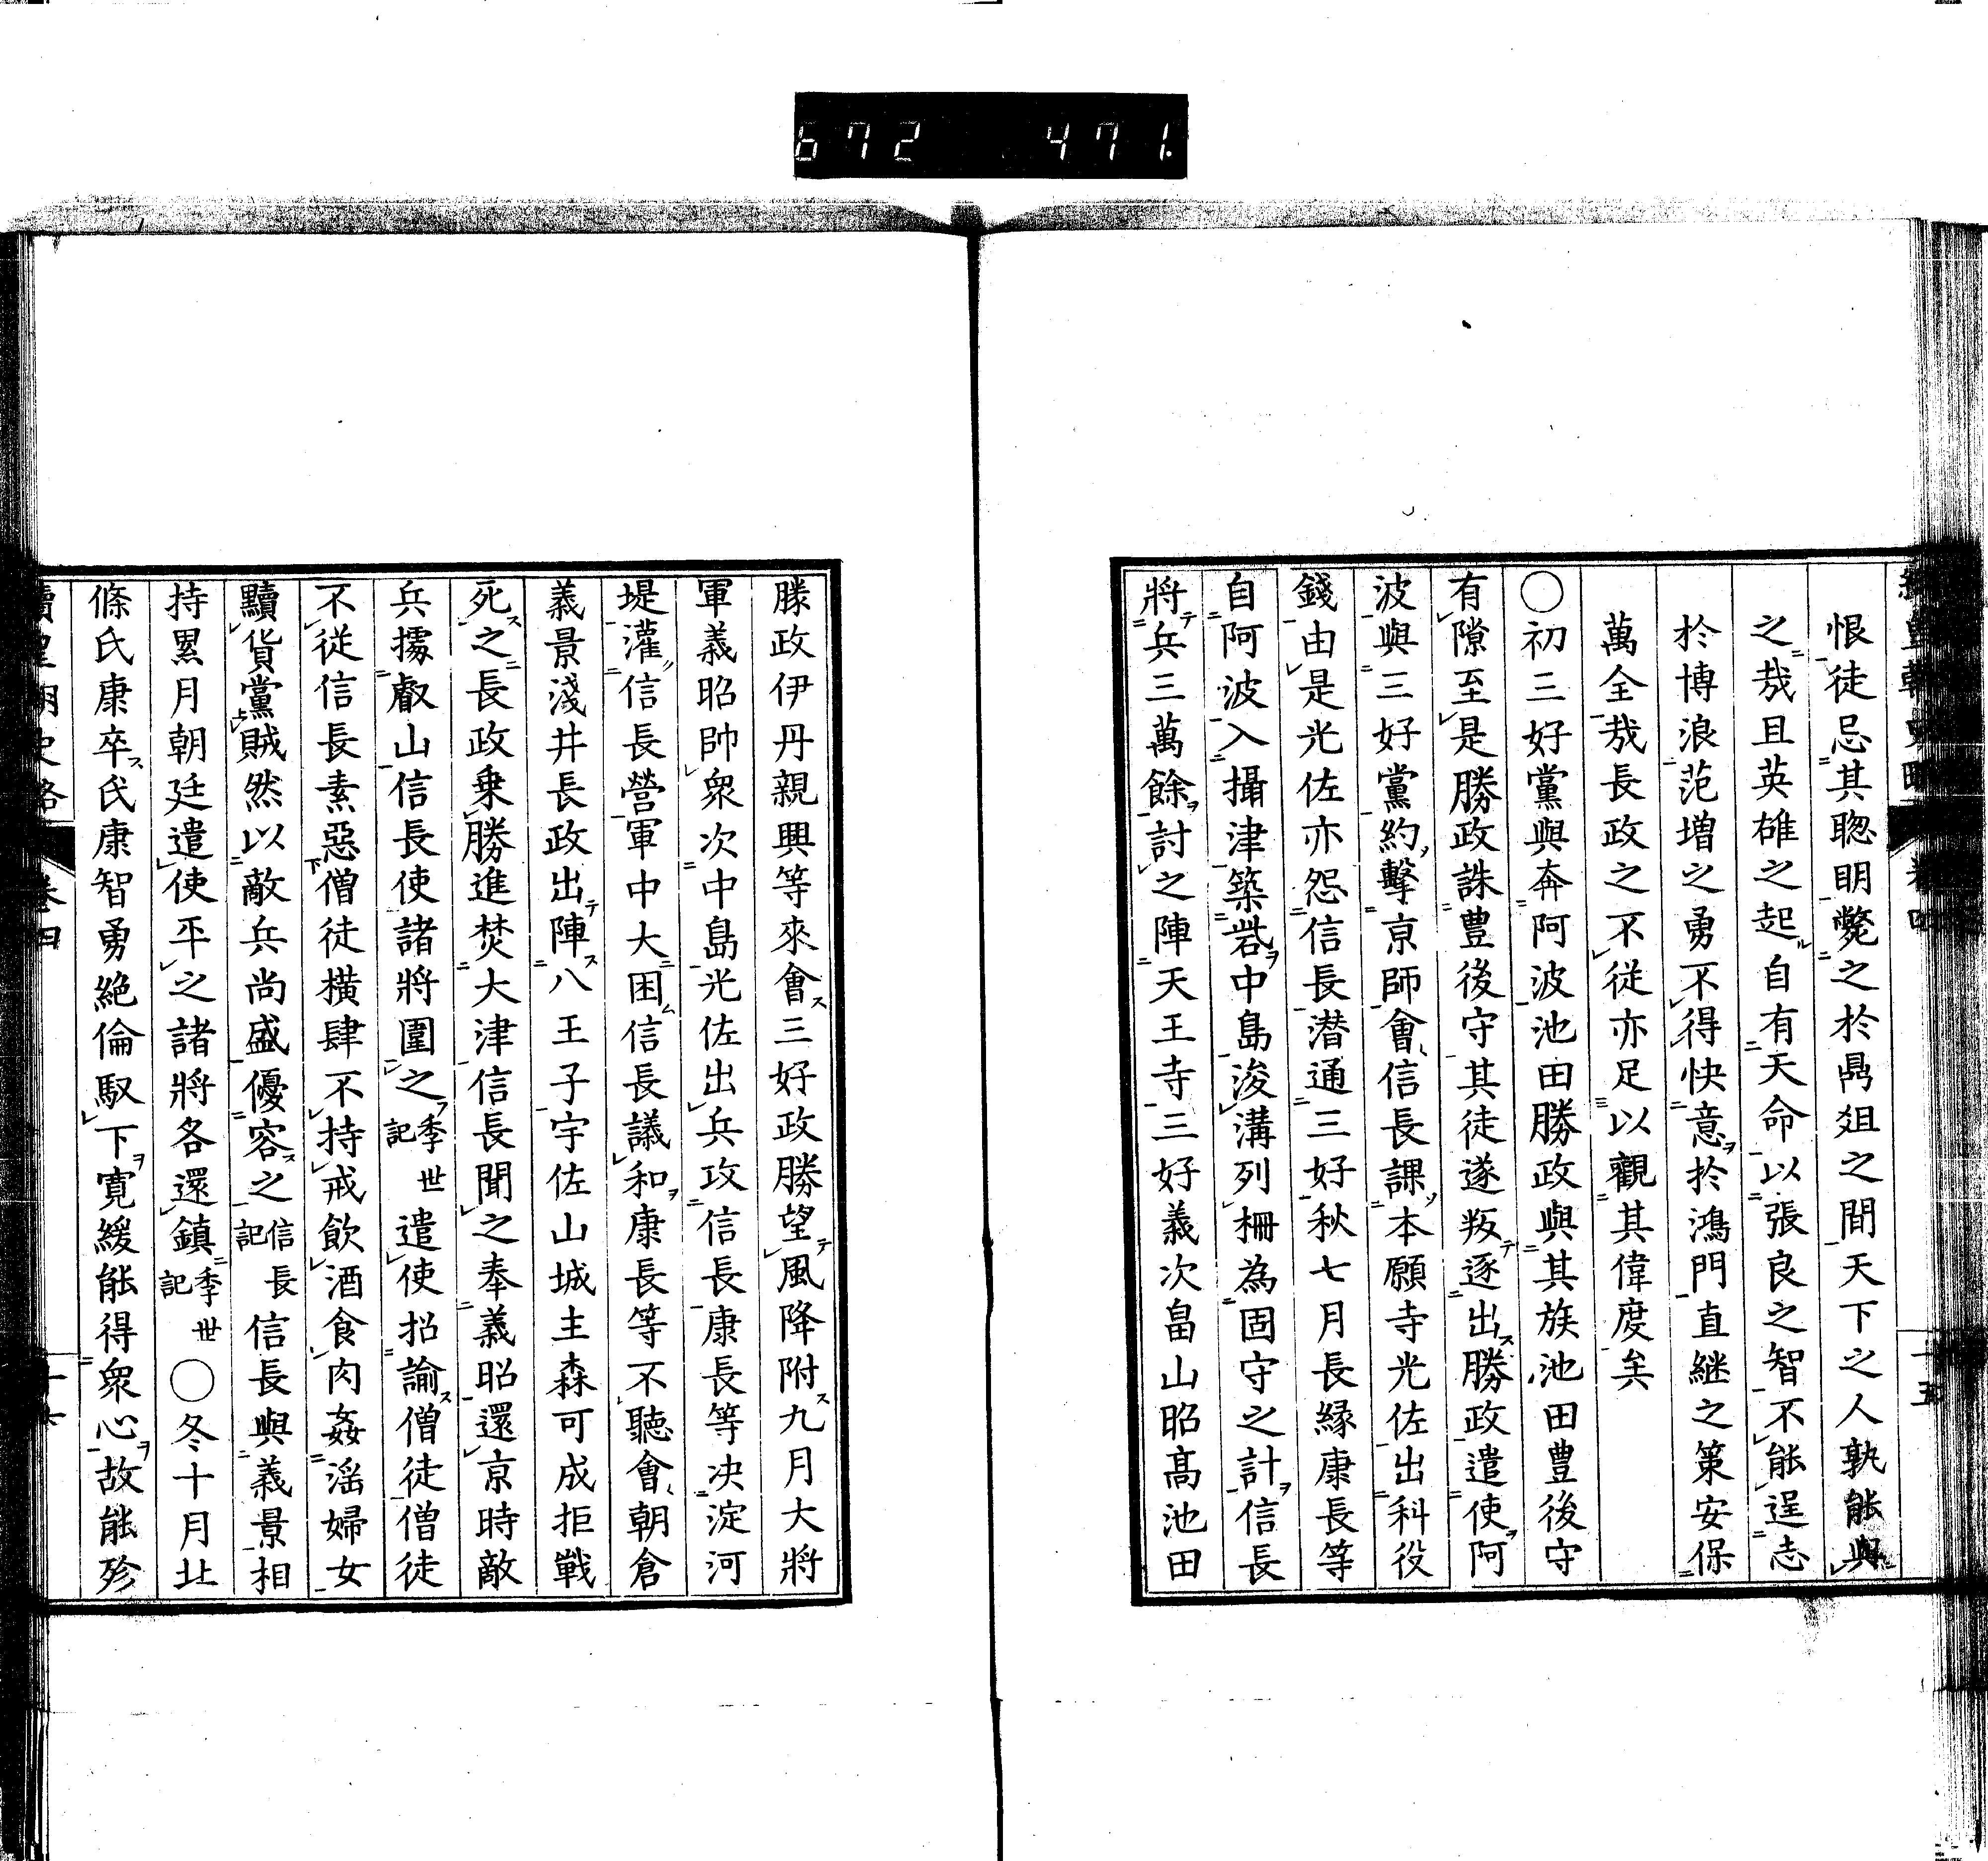 672 471
恨徒忌其聰明斃之於鼎俎之間天下之人孰能與
之哉且英雄之起自有天命以張良之智不能逞志
於博浪范增之勇不得快意於鴻門直継之策安保
萬全哉長政之不従亦足以觀其偉度矣
〇初三好黨與奔阿波池田勝政與其族池田豊後守
有隙至是勝政誅豊後守其徒遂叛逐出勝政遣使阿
波與三好黨約擊京師會信長課本願寺光佐出科役
錢由是光佐亦怨信長潜通三好秋七月長縁康長等
自阿波入攝津築砦中島浚溝列柵為固守之計信長
將兵三萬餘討之陣天王寺三好義次畠山昭高池田
勝政伊丹親興等來會三好政勝望風降附九月大將
軍義昭帥衆次中島光佐出兵攻信長康長等决淀河
堤灌信長營軍中大困信長議和康長等不聽會朝倉
義景淺井長政出陣八王子宇佐山城主森可成拒戦
死之長政乗勝進焚大津信長聞之奉義昭還京時敵
兵據叡山信長使諸將圍之季世記遣使招諭僧徒僧徒
不従信長素惡僧徒横肆不持戒飲酒食肉姦滛婦女
黷貨黨賊然以敵兵尚盛優容之信長記信長與義景相
持累月朝廷遣使平之諸將各還鎮季世記〇冬十月北
條氏康卒氏康智勇絶倫馭下寛緩能得衆心故能殄